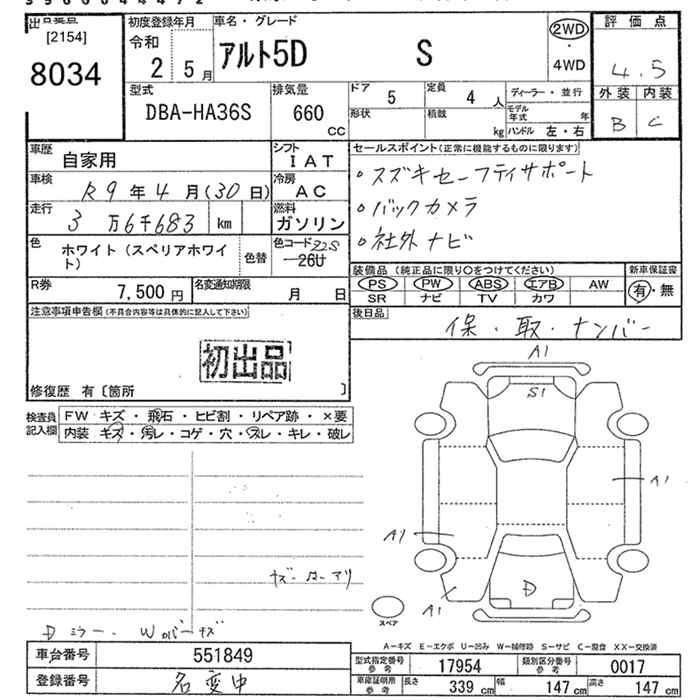 [2154]
8034
初度登録年月
令和
2 5月
車名・グレード
アルト5D S
2WD
・
4WD
評価点
4.5
外装 内装
B C
型式
DBA-HA36S
排気量
660
CC
ドア 5
定員 4人
ディーラー・並行
形状
積載 kg
モデル年式 年
ハンドル 左・右
車歴 自家用
シフト
IAT
セールスポイント(正常に機能するものに限ります)
車検 R9年4月(30日)
冷房
AC
・スズキセーフティサポート
走行 3万6千683 km
燃料
ガソリン
・バックカメラ
・社外ナビ
色 ホワイト(スペリアホワイト)
色替
色コード 22S
26U
装備品(純正品に限り○をつけてください)
PS PW ABS エアB AW
SR ナビ TV カワ
新車保証書
有・無
R券 7,500円
名変通知期限 月 日
後日品
保・取・ナンバー
注意事項申告欄(不具合内容等は具体的に記入して下さい)
初出品
修復歴 有〔箇所 〕
検査員記入欄
FW キズ・飛石・ヒビ割・リペア跡・×要
内装 キズ・汚レ・コゲ・穴・スレ・キレ・破レ
A1
S1
A1
A1
A1
D
スペア
Dミラー. Wカバーキズ
A−キズ E−エクボ U−凹み W−補修跡 S−サビ C−腐食 XX−交換済
車台番号 551849
登録番号 名変中
型式指定番号 参考 17954
類別区分番号 参考 0017
車庫証明用 参考 長さ 339 cm 幅 147 cm 高さ 147 cm